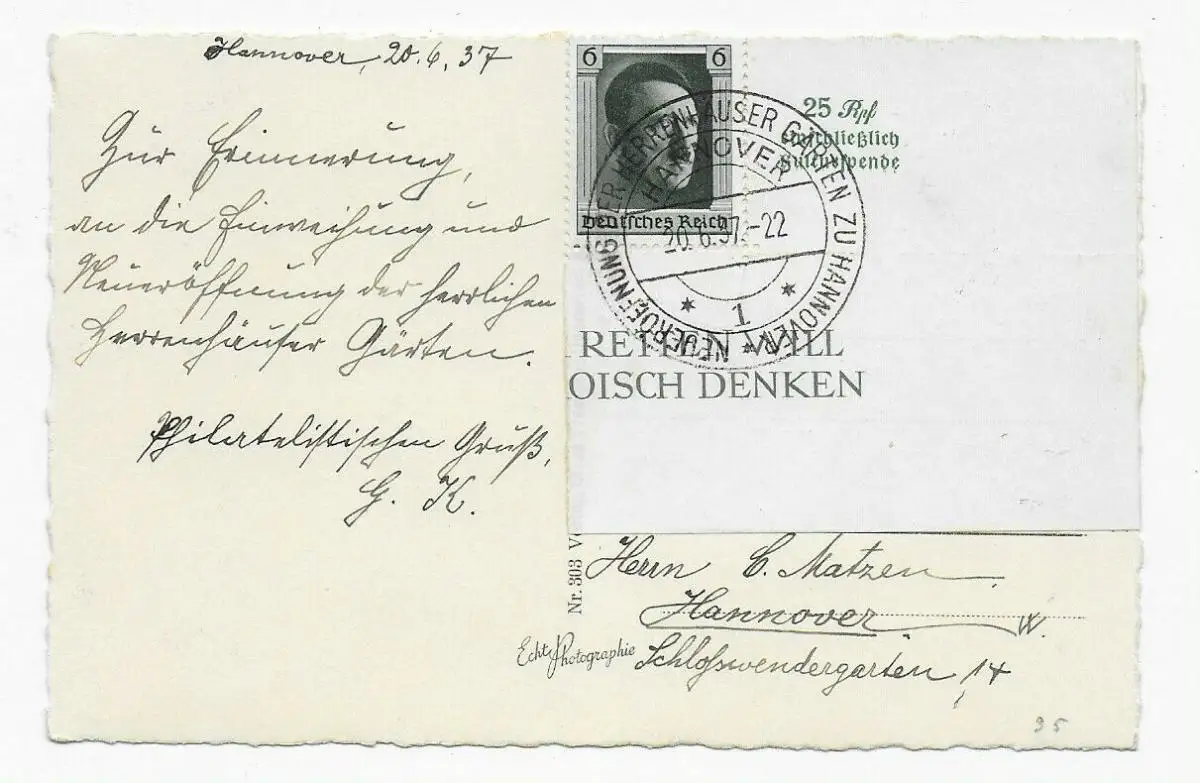 Hannover, 20.6.37
Zur Erinnerung,
an die Einweihung und
Neueröffnung der herrlichen
Herrenhäuser Gärten.
Philatelistischen Gruß,
G. K.
6 6
Deutsches Reich
25 Rpf
einschließlich
Kulturspende
NEUERÖFFNUNG DER HERRENHÄUSER GÄRTEN ZU HANNOVER
HANNOVER
20.6.37.-22
1
RETTEN WILL
OISCH DENKEN
Nr. 303 V
Herrn C. Matzen
Hannover W.
Echte Photographie
Schloßwendergarten 14
35